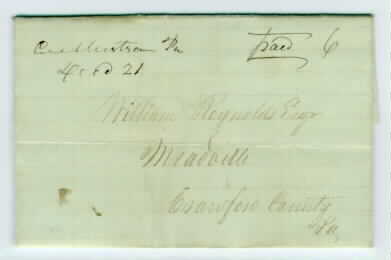 Pa paid 6
21
William Reynolds Esqr
Meadville
Crawford County
Pa